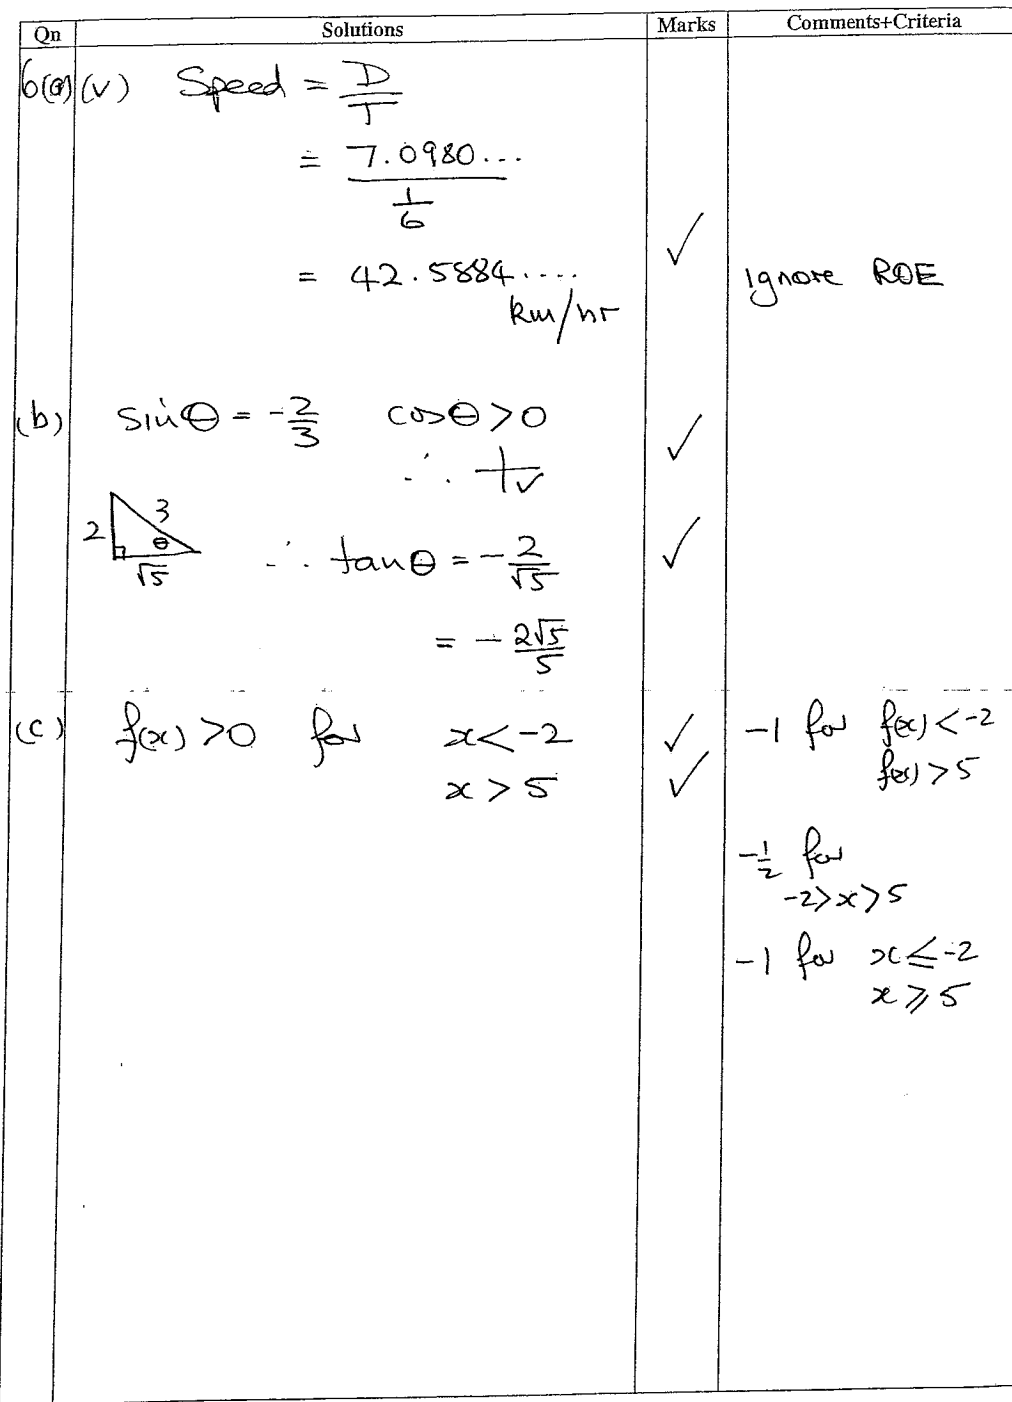 Qn Solutions Marks Comments+Criteria
6(a) (v) Speed = D/T
= 7.0980... / 1/6
= 42.5884.... ✓
km/hr Ignore ROE
(b) sinθ = -2/3 cosθ > 0 ✓
∴ +✓
2 3 θ √5
∴ tanθ = -2/√5 ✓
= -2√5/5
(c) f(x) > 0 for x < -2 ✓ -1 for f(x) < -2
x > 5 ✓ f(x) > 5
-1/2 for
-2 > x > 5
-1 for x ≤ -2
x ≥ 5